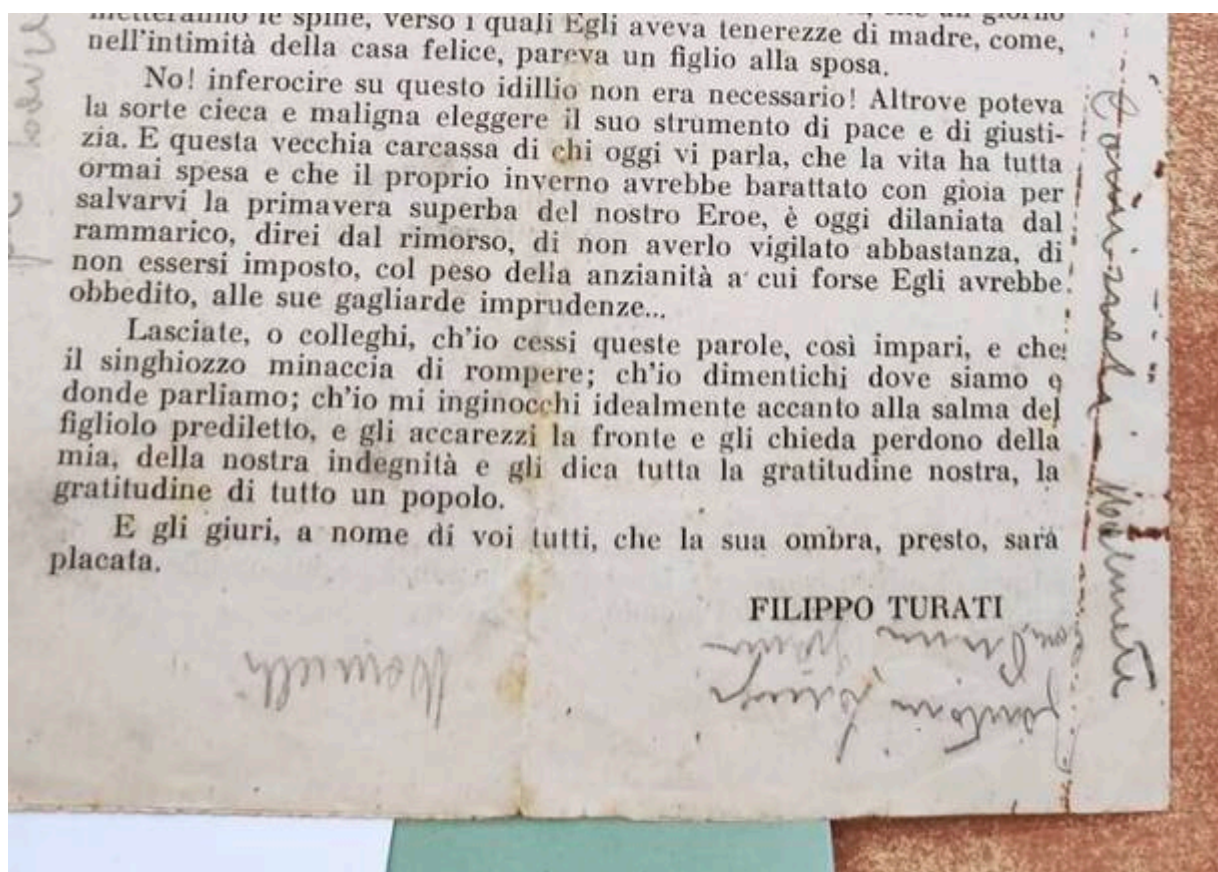 metteranno le spine, verso i quali Egli aveva tenerezze di madre, come,
nell'intimità della casa felice, pareva un figlio alla sposa.
No! inferocire su questo idillio non era necessario! Altrove poteva
la sorte cieca e maligna eleggere il suo strumento di pace e di giusti-
zia. E questa vecchia carcassa di chi oggi vi parla, che la vita ha tutta
ormai spesa e che il proprio inverno avrebbe barattato con gioia per
salvarvi la primavera superba del nostro Eroe, è oggi dilaniata dal
rammarico, direi dal rimorso, di non averlo vigilato abbastanza, di
non essersi imposto, col peso della anzianità a cui forse Egli avrebbe
obbedito, alle sue gagliarde imprudenze...
Lasciate, o colleghi, ch'io cessi queste parole, così impari, e che
il singhiozzo minaccia di rompere; ch'io dimentichi dove siamo o
donde parliamo; ch'io mi inginocchi idealmente accanto alla salma del
figliolo prediletto, e gli accarezzi la fronte e gli chieda perdono della
mia, della nostra indegnità e gli dica tutta la gratitudine nostra, la
gratitudine di tutto un popolo.
E gli giuri, a nome di voi tutti, che la sua ombra, presto, sarà
placata.
FILIPPO TURATI